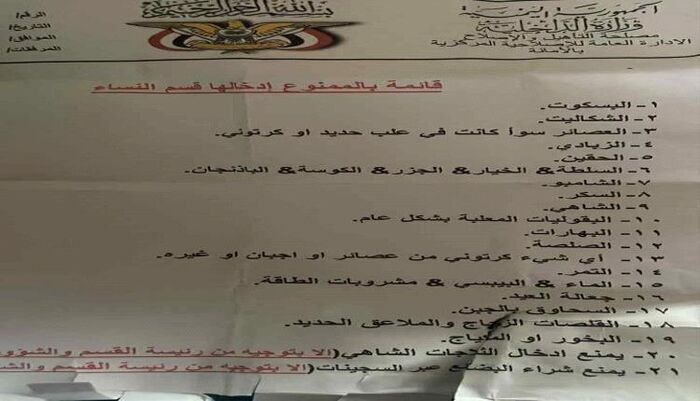 الجمهورية اليمنية
وزارة الداخلية
مصلحة التأهيل والإصلاح
الادارة العامة للإصلاحية المركزية
بالأمانة
بسم الله الرحمن الرحيم
الرقم/
التاريخ/
الموافق/
المرفقات/
قائمة بالممنوع إدخالها قسم النساء
١- البسكوت.
٢- الشكاليت.
٣- العصائر سوأ كانت في علب حديد او كرتوني.
٤- الزبادي.
٥- الحقين.
٦- السلطة& الخيار& الجزر& الكوسة& الباذنجان.
٧- الشامبو.
٨- السكر.
٩- الشاهي.
١٠- البقوليات المعلبة بشكل عام.
١١- البهارات.
١٢- الصلصة.
١٣- أي شيء كرتوني من عصائر او اجبان او غيره.
١٤- التمر.
١٥- الماء & البيبسي & مشروبات الطاقة.
١٦- جعالة العيد.
١٧- السحاوق بالجبن.
١٨- القلصات الزجاج والملاعق الحديد.
١٩- البخور او
٢٠- يمنع ادخال الثلاجات الشاهي(إلا بتوجيه من رئيسة القسم
٢١- يمنع شراء البضائع عبر السجينات(إلا بتوجيه من رئيسة القسم